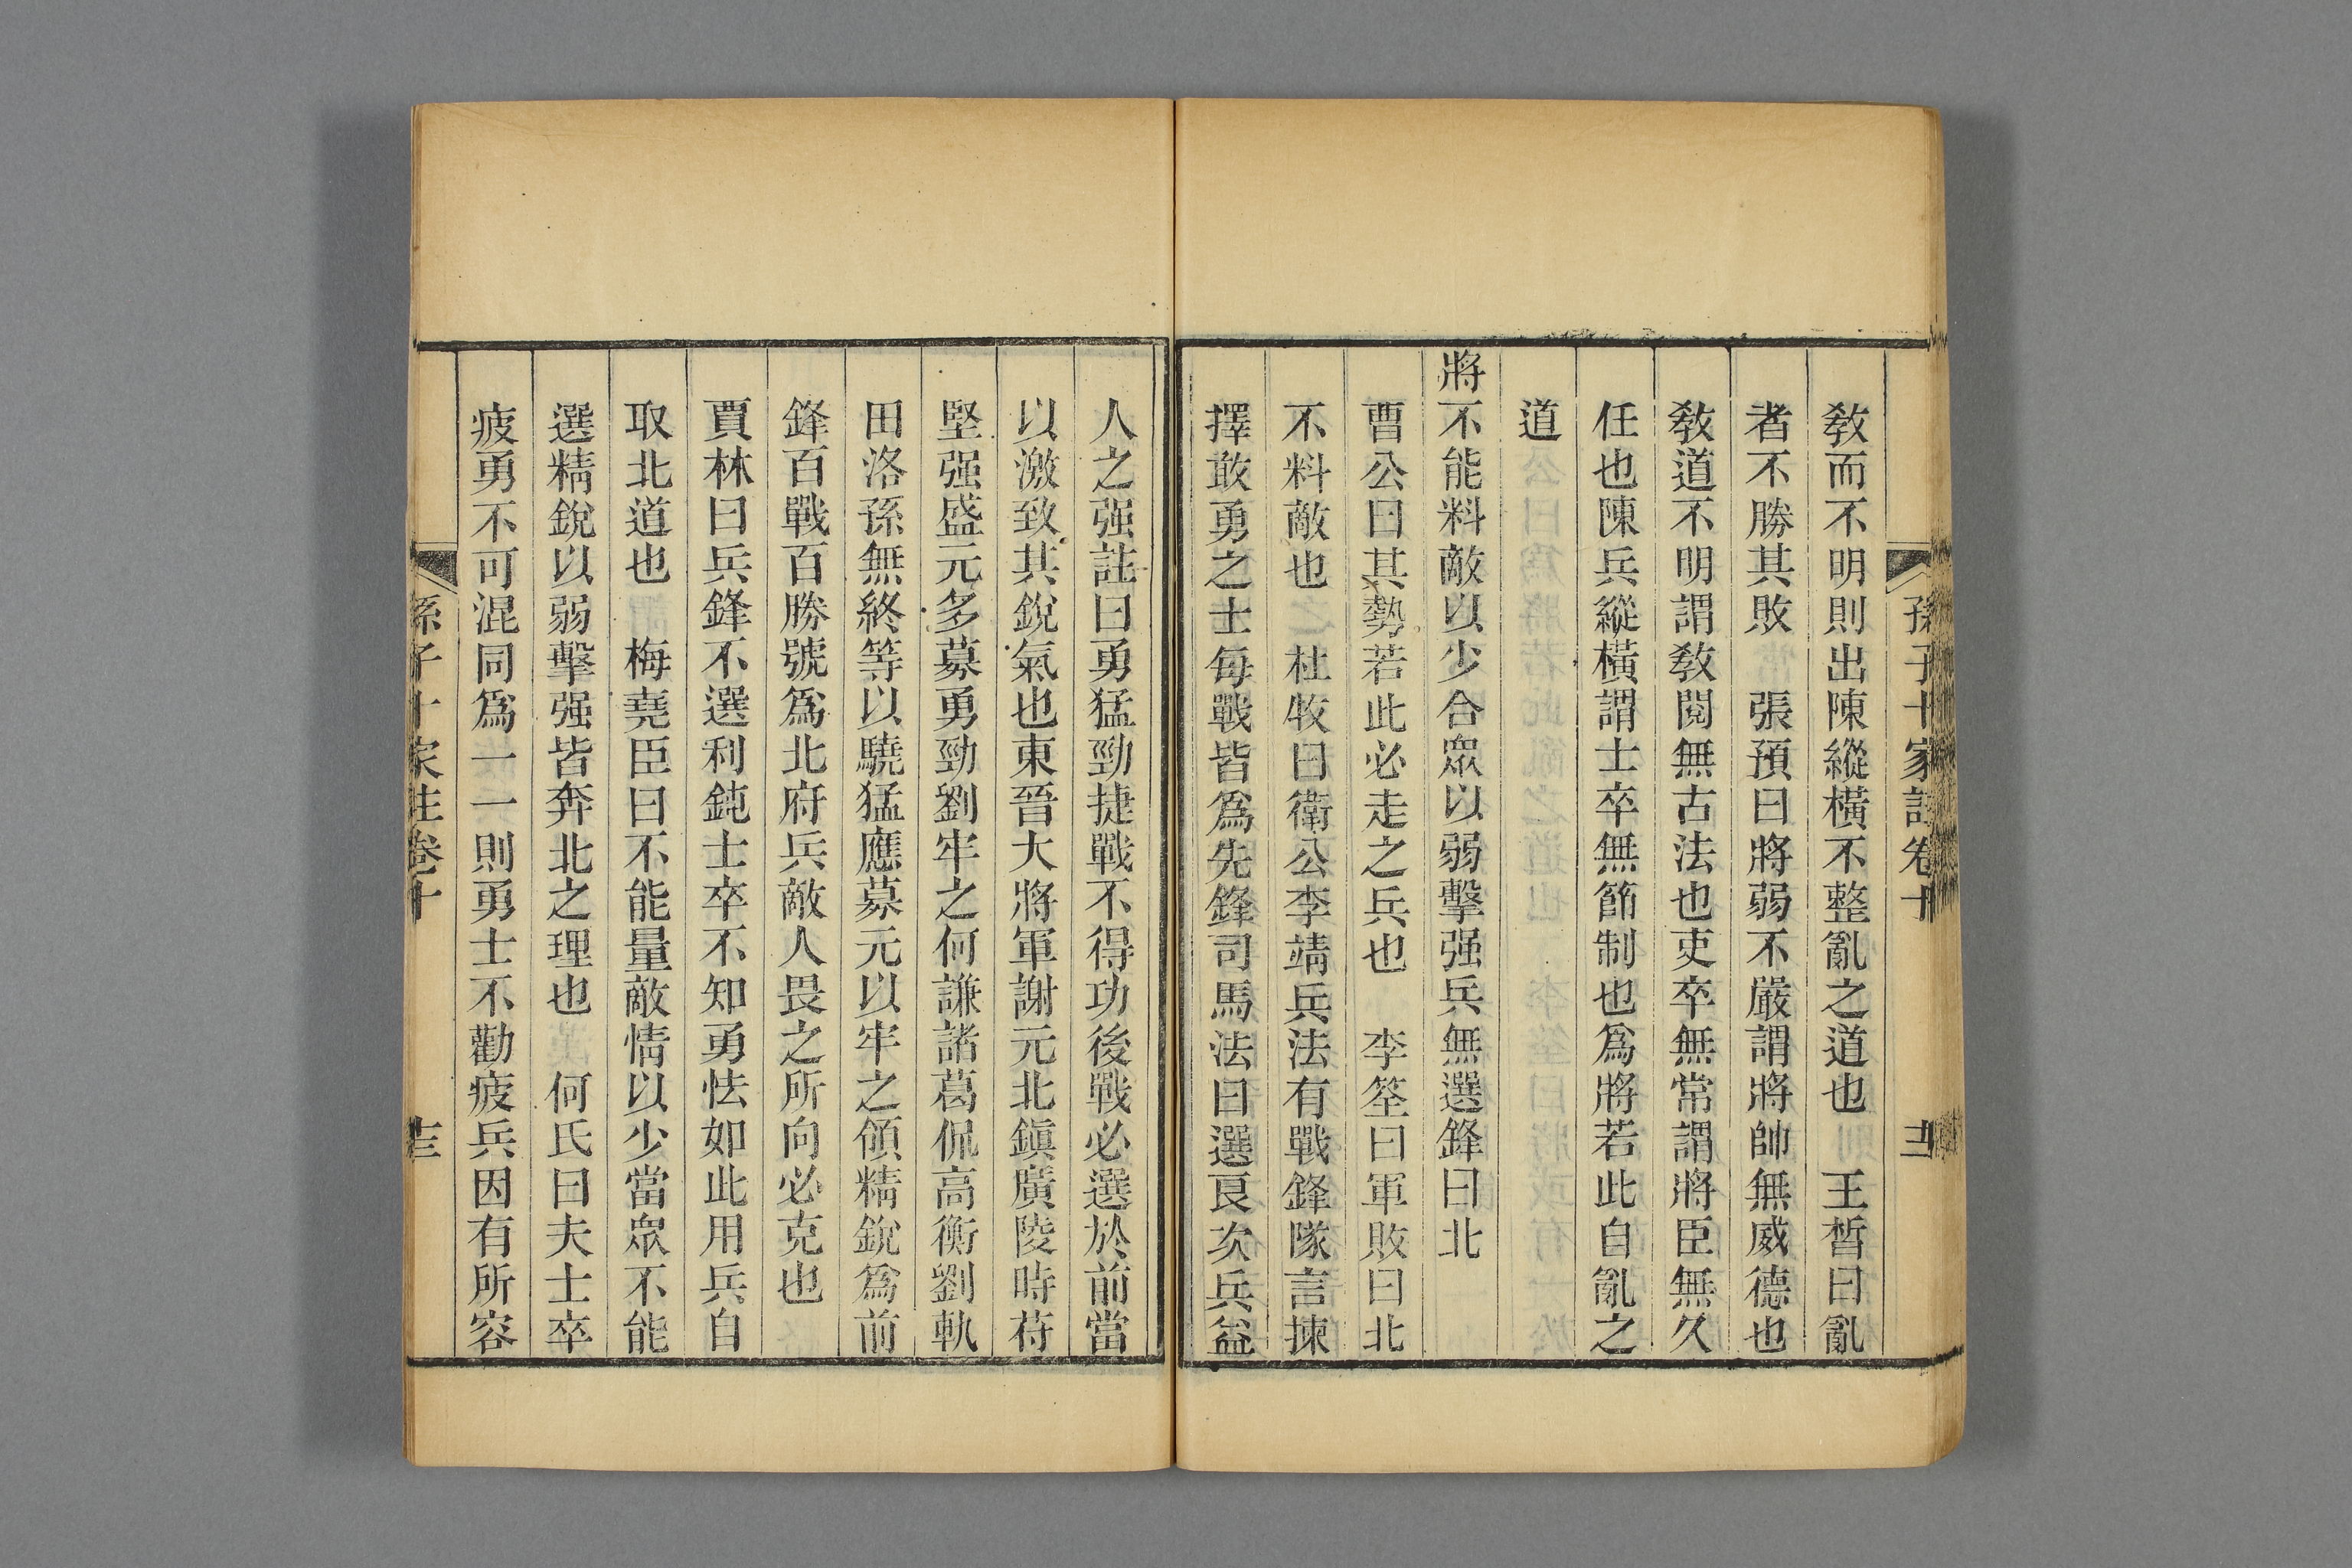 孫子十家註卷十 十二
教而不明則出陳縱橫不整亂之道也 王晳曰亂
者不勝其敗 張預曰將弱不嚴謂將帥無威德也
教道不明謂教閱無古法也吏卒無常謂將臣無久
任也陳兵縱橫謂士卒無節制也爲將若此自亂之
道
將不能料敵以少合眾以弱擊强兵無選鋒曰北
曹公曰其勢若此必走之兵也 李筌曰軍敗曰北
不料敵也 杜牧曰衛公李靖兵法有戰鋒隊言揀
擇敢勇之士每戰皆爲先鋒司馬法曰選良次兵益
人之强註曰勇猛勁捷戰不得功後戰必選於前當
以激致其銳氣也東晉大將軍謝元北鎭廣陵時苻
堅强盛元多募勇勁劉牢之何謙諸葛侃高衡劉軌
田洛孫無終等以驍猛應募元以牢之領精銳爲前
鋒百戰百勝號爲北府兵敵人畏之所向必克也
賈林曰兵鋒不選利鈍士卒不知勇怯如此用兵自
取北道也 梅堯臣曰不能量敵情以少當眾不能
選精銳以弱擊强皆奔北之理也 何氏曰夫士卒
疲勇不可混同爲一一則勇士不勸疲兵因有所容
孫子十家註卷十 十三